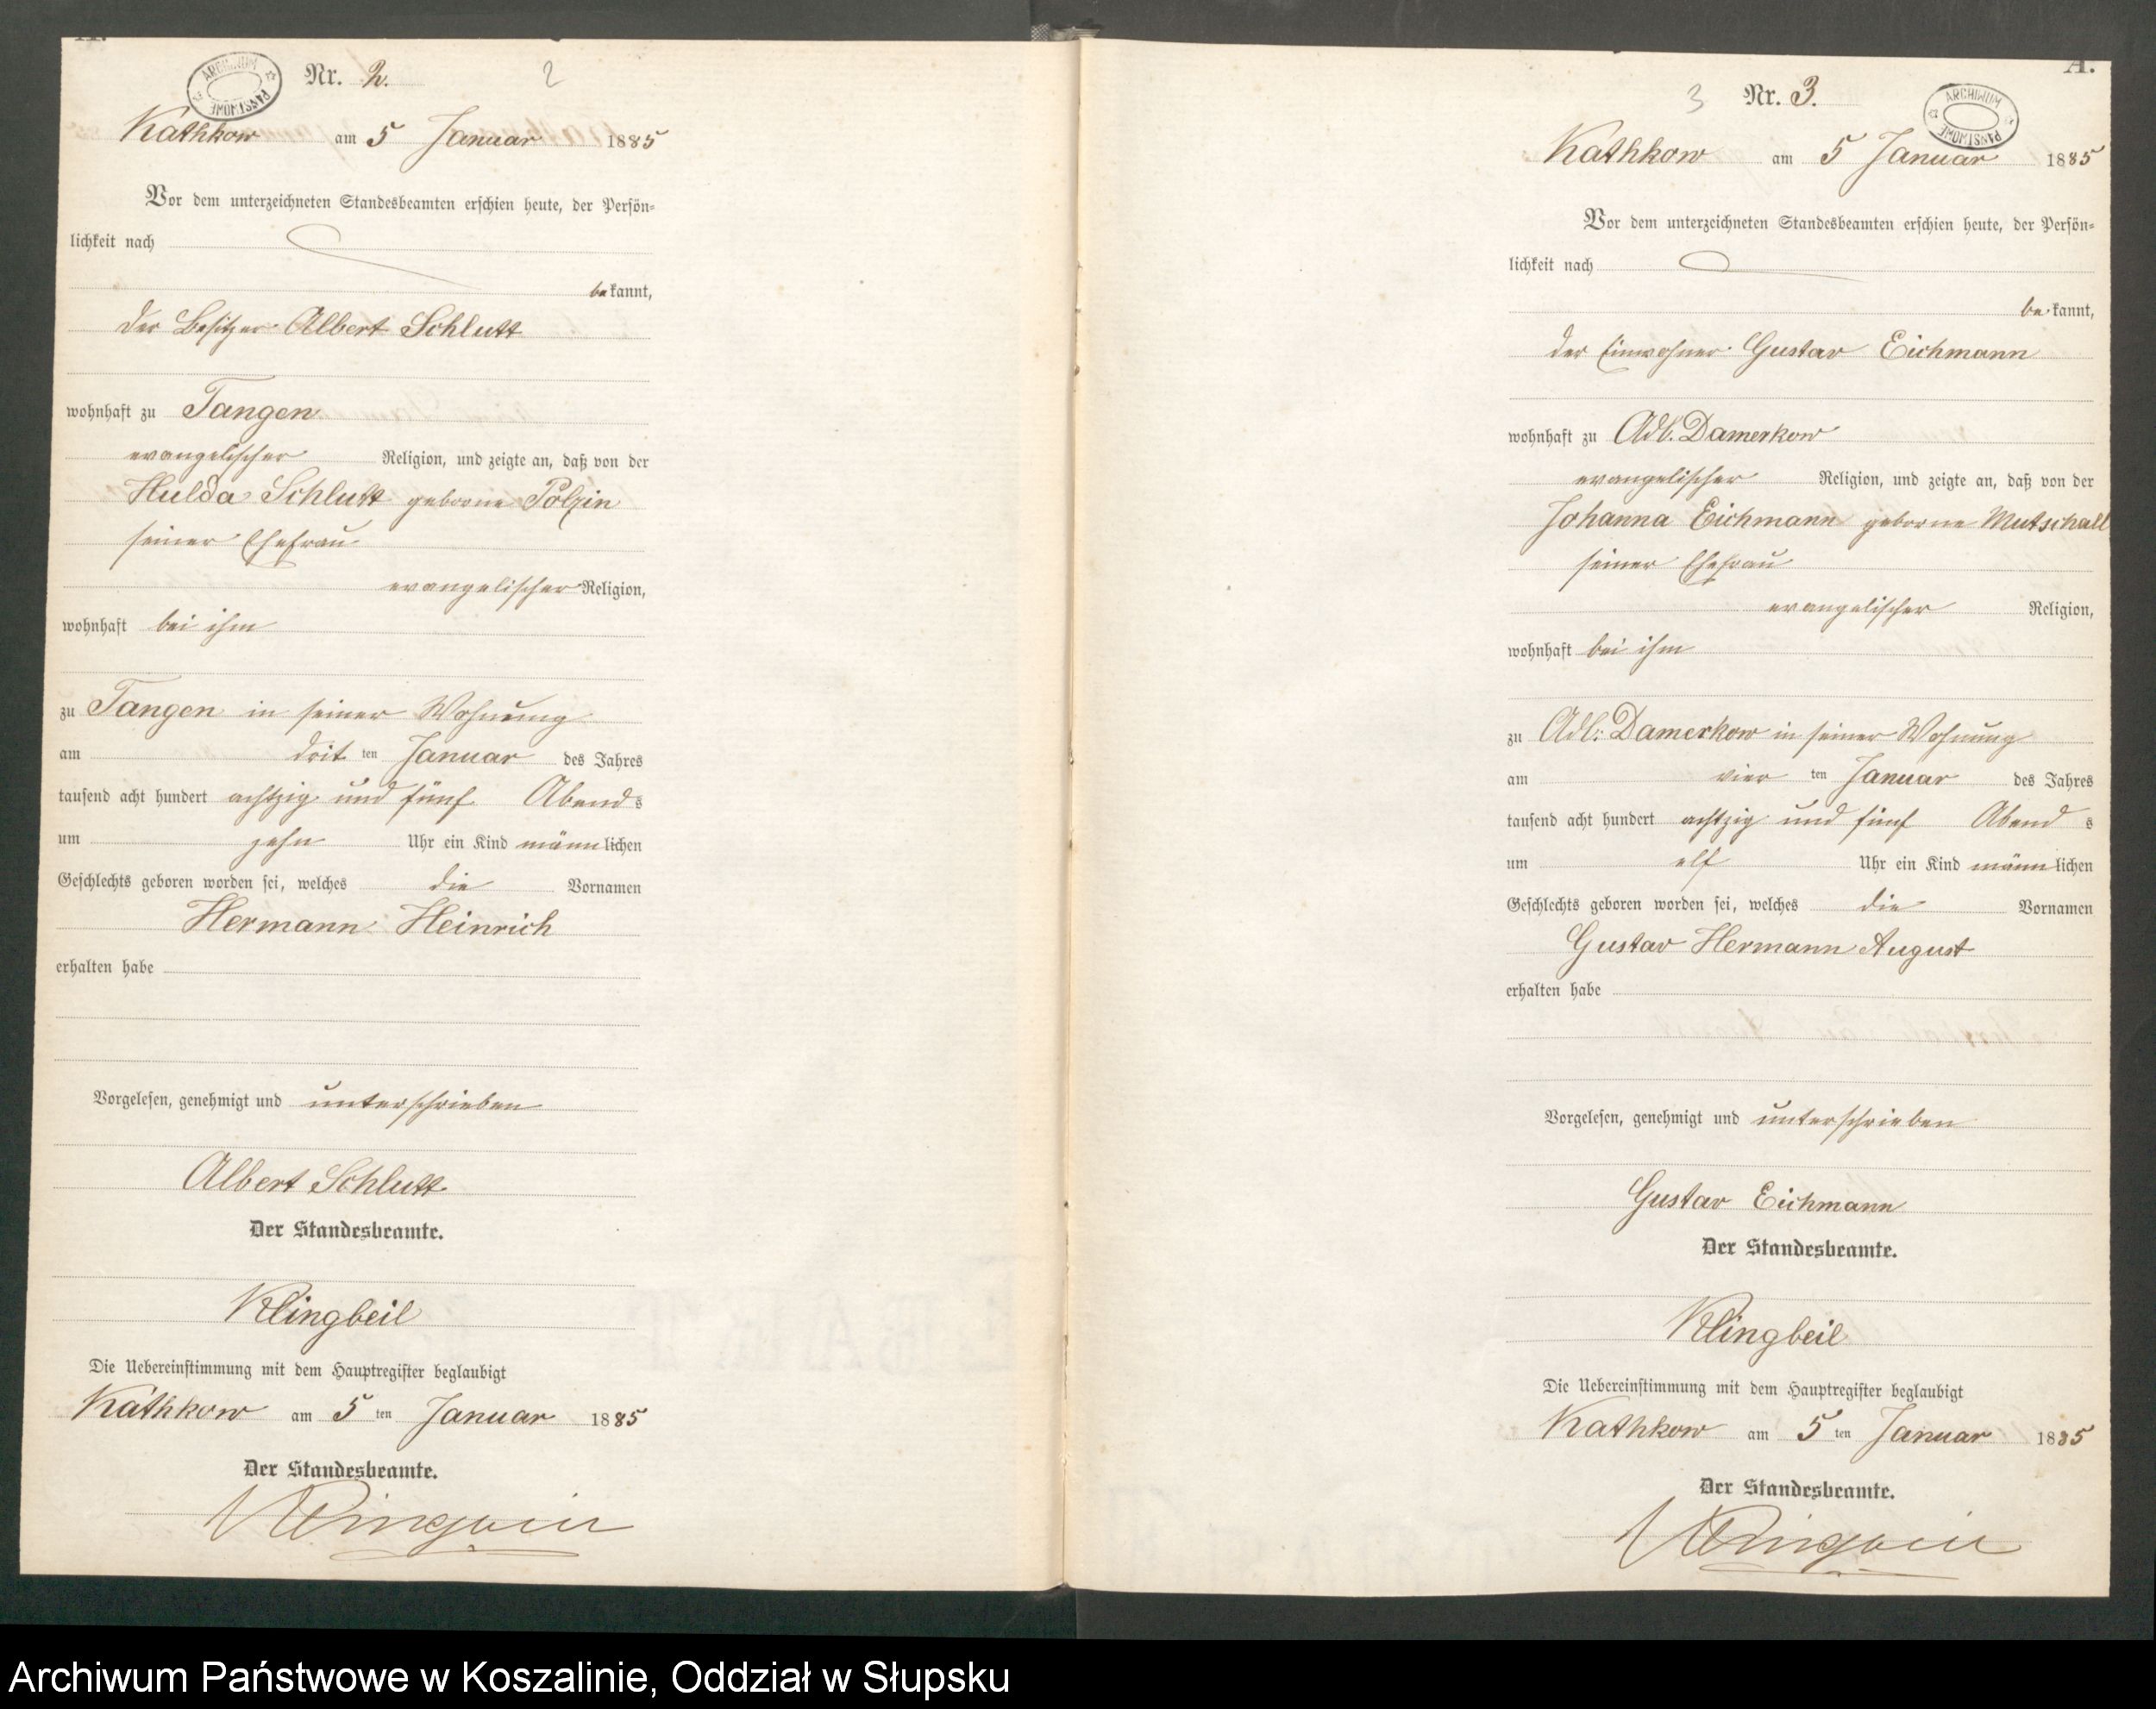 A.
ARCHIWUM PAŃSTWOWE
Nr. 2.
2
Kathkow am 5 Januar 1885
Vor dem unterzeichneten Standesbeamten erschien heute, der Persön=
lichkeit nach
bekannt,
der Besitzer Albert Schlutt
wohnhaft zu Tangen
evangelischer Religion, und zeigte an, daß von der
Hulda Schlutt geborne Polzin
seiner Ehefrau
evangelischer Religion,
wohnhaft bei ihm
zu Tangen in seiner Wohnung
am drit ten Januar des Jahres
tausend acht hundert achtzig und fünf Abends
um zehn Uhr ein Kind männlichen
Geschlechts geboren worden sei, welches die Vornamen
Hermann Heinrich
erhalten habe
Vorgelesen, genehmigt und unterschrieben
Albert Schlutt
Der Standesbeamte.
Klingbeil
Die Uebereinstimmung mit dem Hauptregister beglaubigt
Kathkow am 5 ten Januar 1885
Der Standesbeamte.
Klingbeil
A.
3
Nr. 3.
ARCHIWUM PAŃSTWOWE
Kathkow am 5 Januar 1885
Vor dem unterzeichneten Standesbeamten erschien heute, der Persön=
lichkeit nach
bekannt,
der Einwohner Gustav Eichmann
wohnhaft zu Adl. Damerkow
evangelischer Religion, und zeigte an, daß von der
Johanna Eichmann geborne Mutschall
seiner Ehefrau
evangelischer Religion,
wohnhaft bei ihm
zu Adl. Damerkow in seiner Wohnung
am vier ten Januar des Jahres
tausend acht hundert achtzig und fünf Abends
um elf Uhr ein Kind männlichen
Geschlechts geboren worden sei, welches die Vornamen
Gustav Hermann August
erhalten habe
Vorgelesen, genehmigt und unterschrieben
Gustav Eichmann
Der Standesbeamte.
Klingbeil
Die Uebereinstimmung mit dem Hauptregister beglaubigt
Kathkow am 5 ten Januar 1885
Der Standesbeamte.
Klingbeil
Archiwum Państwowe w Koszalinie, Oddział w Słupsku